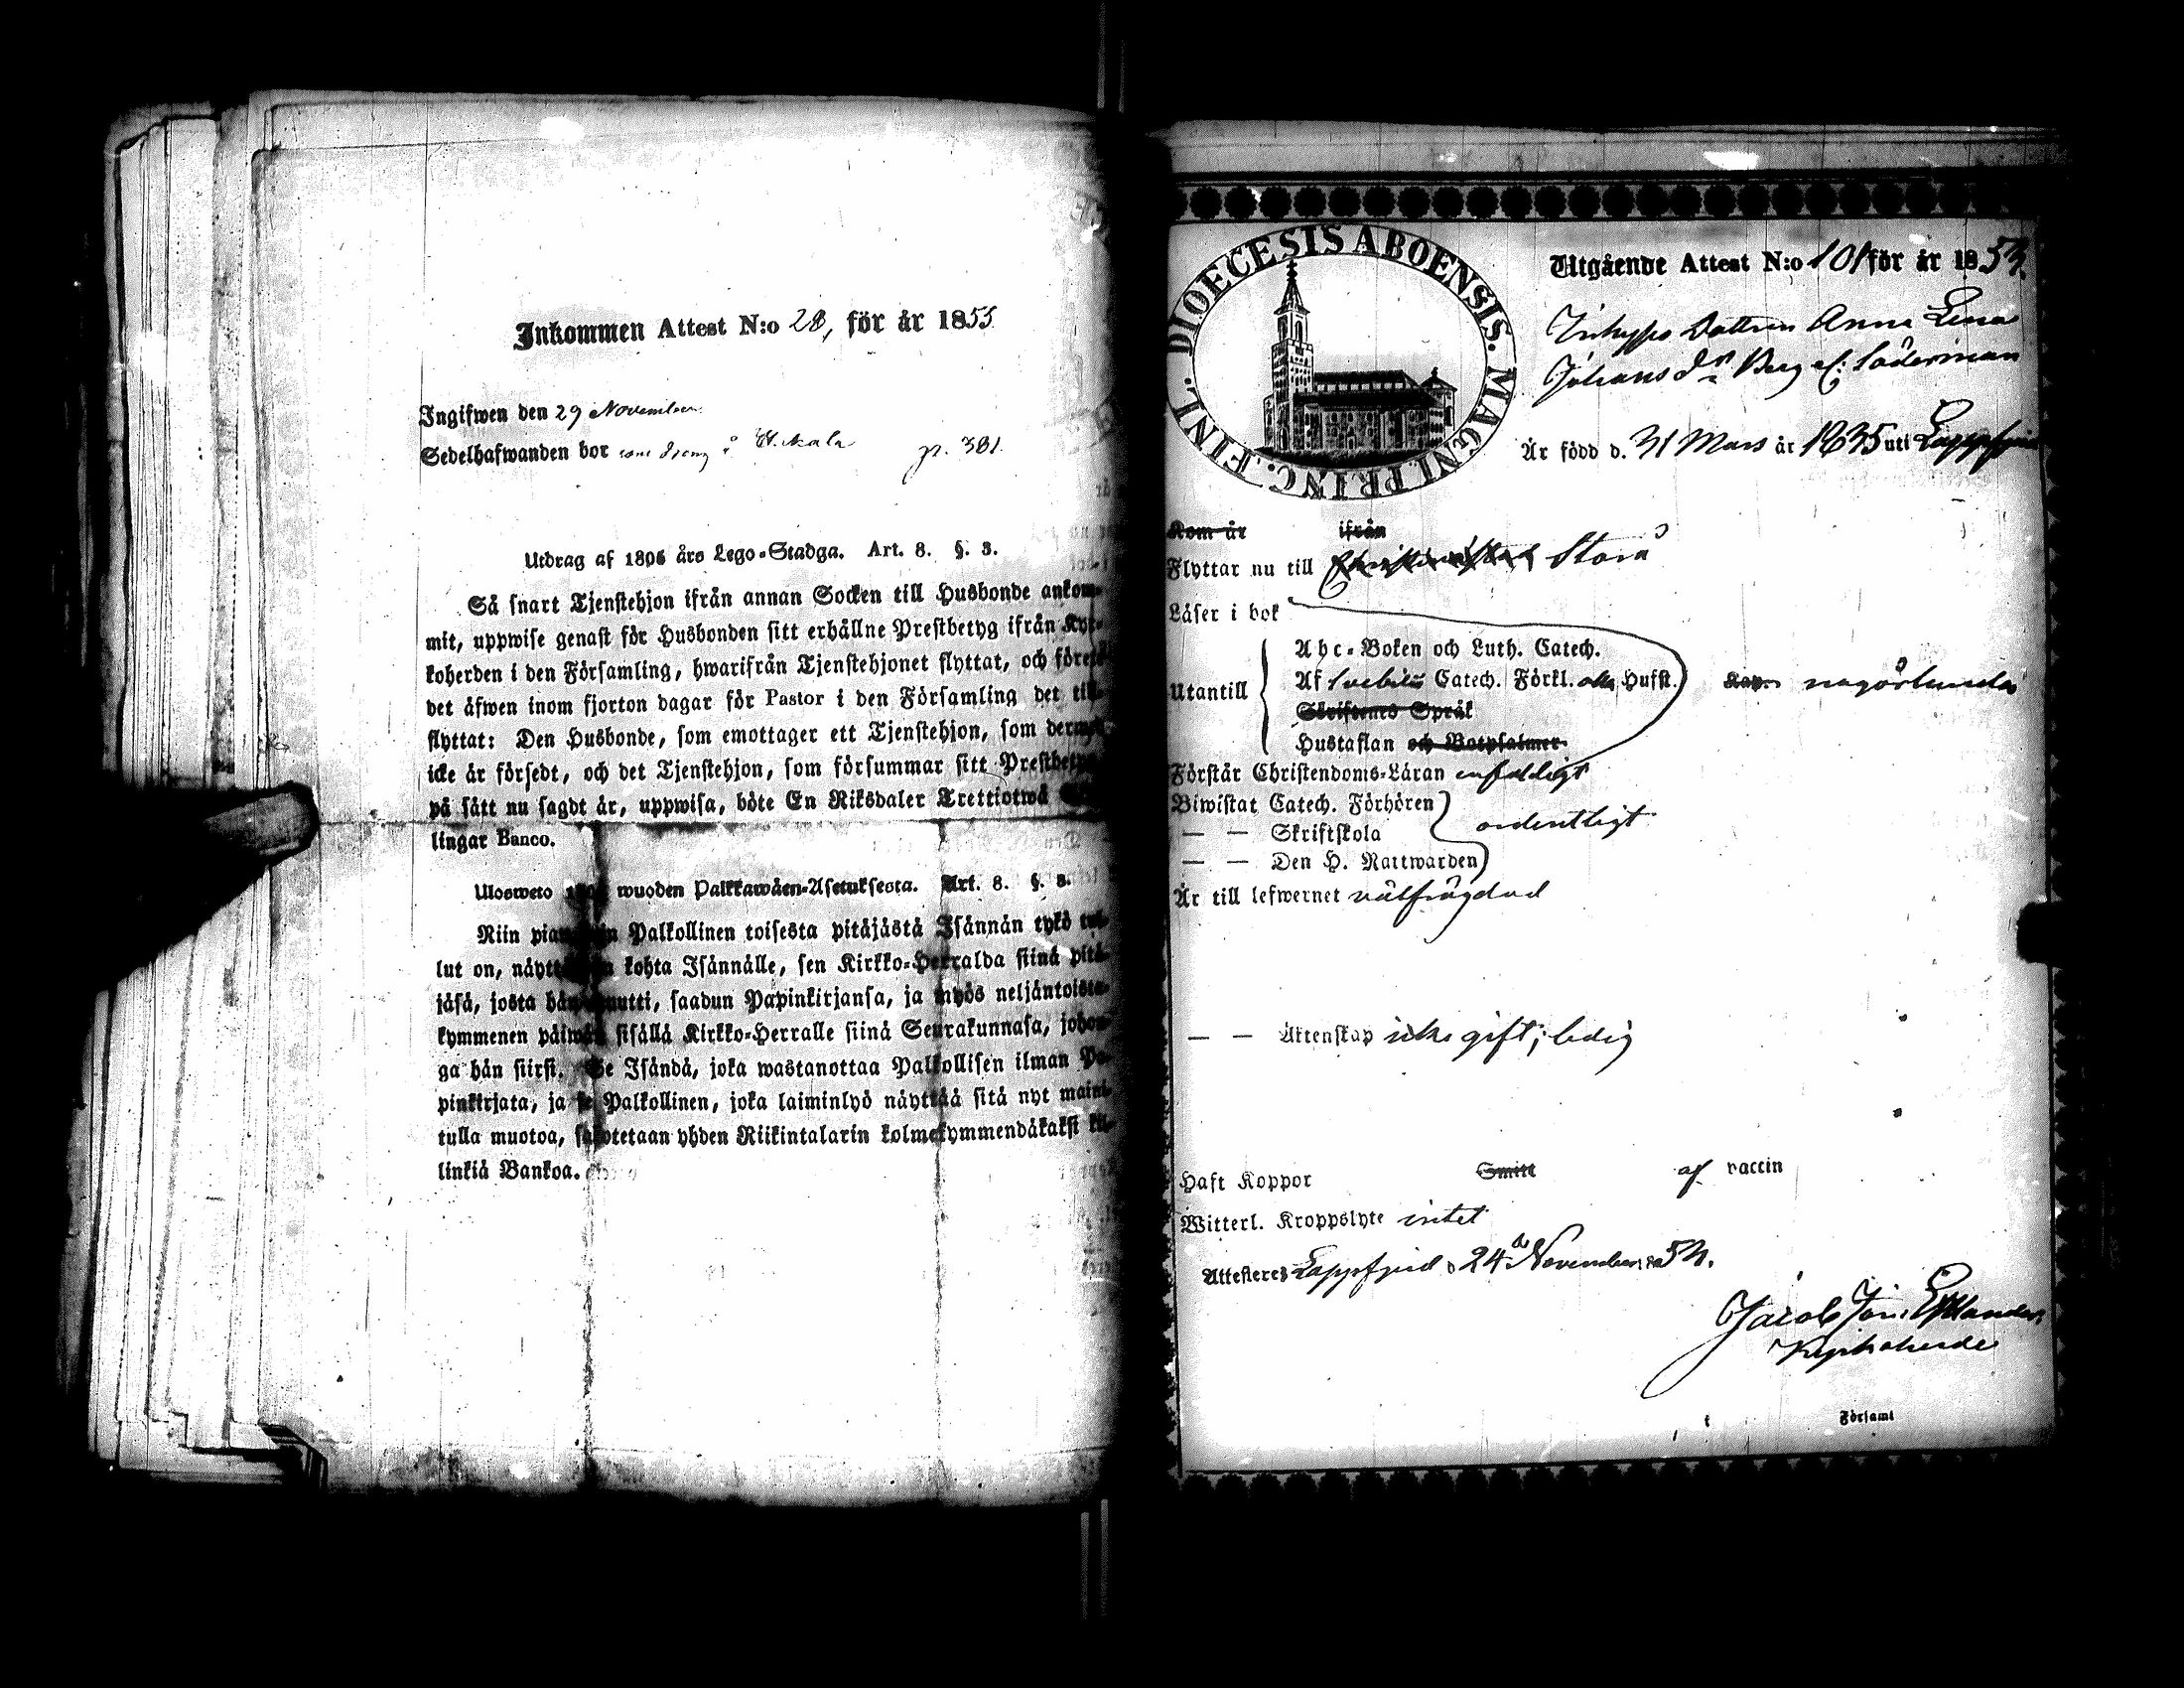 Inkommen Attest N:o 28, för år 1853
Ingifwen den 29 November
Sedelhafwanden bor som dräng å p. 381.
Utdrag af 1805 års Lego-Stadga. Art. 8. §. 3.
Så snart Tjenstehjon ifrån annan Socken till Husbonde ankom-
mit, uppwise genast för Husbonden sitt erhållne Prestbetyg ifrån Kyr-
koherden i den Församling, hwarifrån Tjenstehjonet flyttat, och förete
det äfwen inom fjorton dagar för Pastor i den Församling det till-
flyttat: Den Husbonde, som emottager ett Tjenstehjon, som dermed
icke är försedt, och det Tjenstehjon, som försummar sitt Prestbetyg
på sätt nu sagdt är, uppwisa, böte En Riksdaler Trettiotwå
lingar Banco.
Ulosweto wuoden Palkkawäen-Asetuksesta. Art. 8. §. 3.
Niin pian Palkollinen toisesta pitäjästä Isännän tykö tul-
lut on, kohta Isännälle, sen Kirkko-Herralda siinä pitä-
jäsä, josta hän muutti, saadun Papinkirjansa, ja myös neljäntoista-
kymmenen päiwän sisällä Kirkko-Herralle siinä Seurakunnasa, johon-
ga hän siirsi. Se Isändä, joka wastanottaa Palkollisen ilman Pa-
pinkirjata, ja se Palkollinen, joka laiminlyö näyttää sitä nyt maini-
tulla muotoa, sakotetaan yhden Riikintalarin kolmekymmendäkaksi kil-
linkiä Bankoa.
DIOECESIS ABOENSIS. MAGNI PRINC. FINL.
Utgående Attest N:o 101 för år 1853.
Inhyses Dottren Anna Lena
Johans dr Berg el. Söderman
Är född d. 31 Mars år 1835 uti Lappfjerd
Kom år ifrån
Flyttar nu till Christinestad Storå
Läser i bok
Utantill
Abc-Boken och Luth. Catech.
Af Svebilii Catech. Förkl. Husst. någorlunda
Skriftenes Språk
Hustaflan och Botpsalmer
Förstår Christendoms-Läran enfaldigt
Biwistat Catech. Förhören
— — Skriftskola ordentligt
— — Den H. Nattwarden
Är till lefwernet välfrägdad
— — Äktenskap icke gift; ledig
Haft Koppor Smitt af vaccin
Witterl. Kroppslyte intet
Attesteres Lappfjerd d 24 de November 1853.
Jacob Joh.
Kyrkoherde
i Församl